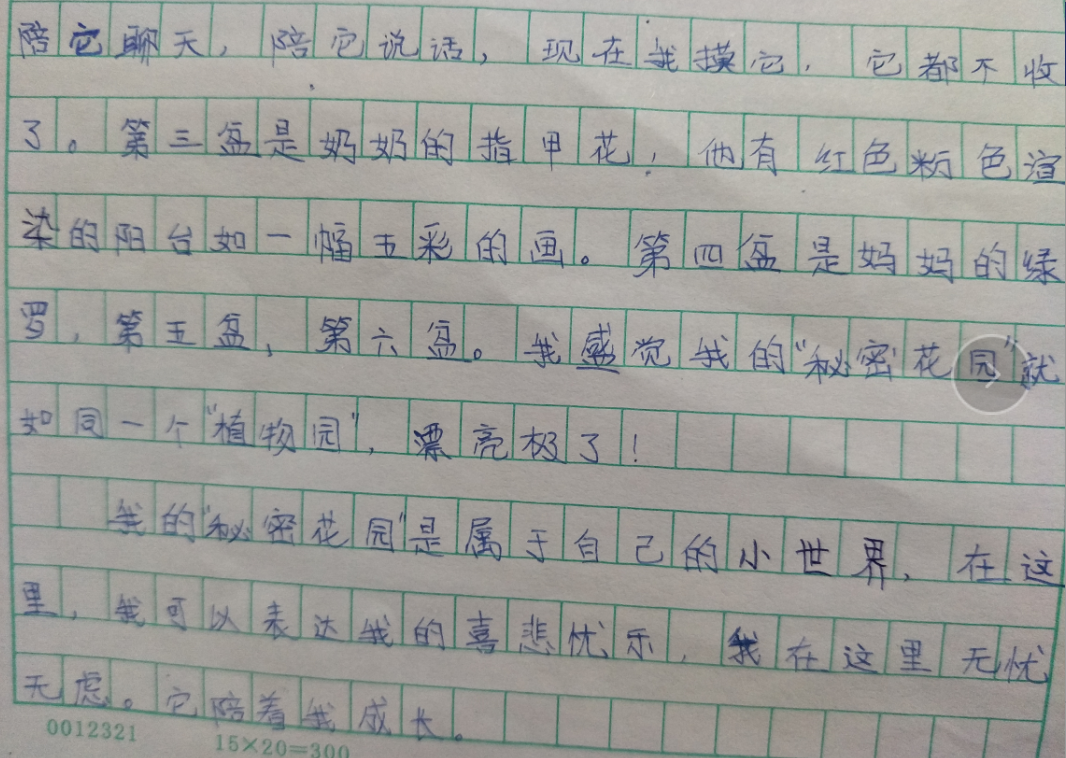 陪它聊天，陪它说话，现在我摸它，它都不收
了。第三盆是奶奶的指甲花，他有红色粉色渲
染的阳台如一幅五彩的画。第四盆是妈妈的绿
罗，第五盆、第六盆。我感觉我的“秘密花园”就
如同一个“植物园”，漂亮极了！
我的“秘密花园”是属于自己的小世界，在这
里，我可以表达我的喜悲忧乐，我在这里无忧
无虑。它陪着我成长。
0012321
15×20=300